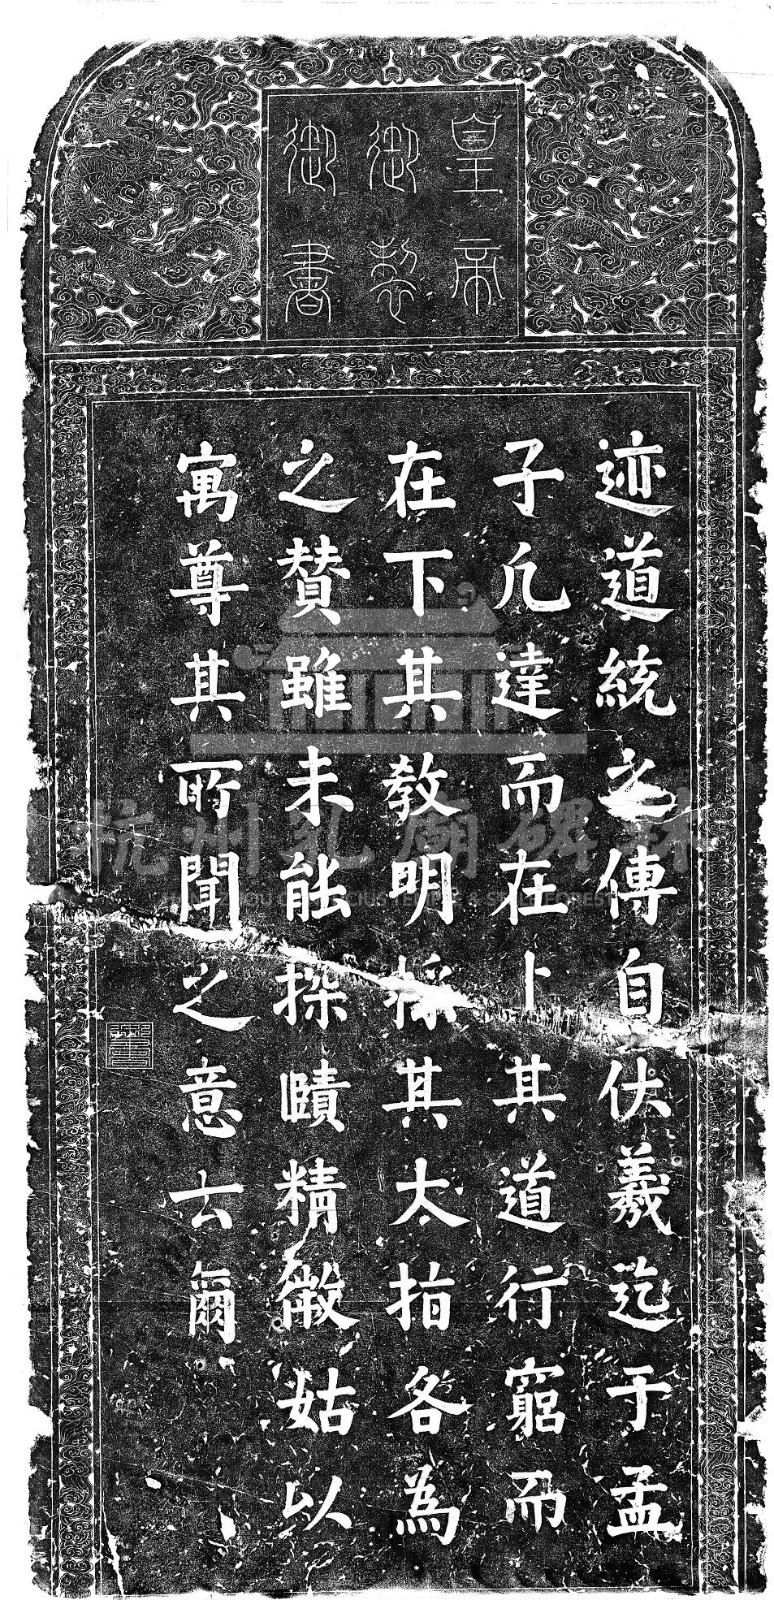 皇帝
御製
御書
迹道統之傳自伏羲迄于孟
子凡達而在上其道行窮而
在下其教明採其大指各為
之贊雖未能探賾精微姑以
寓尊其所聞之意云爾
杭州孔廟碑林
HANGZHOU CONFUCIUS TEMPLE & STELE FOREST